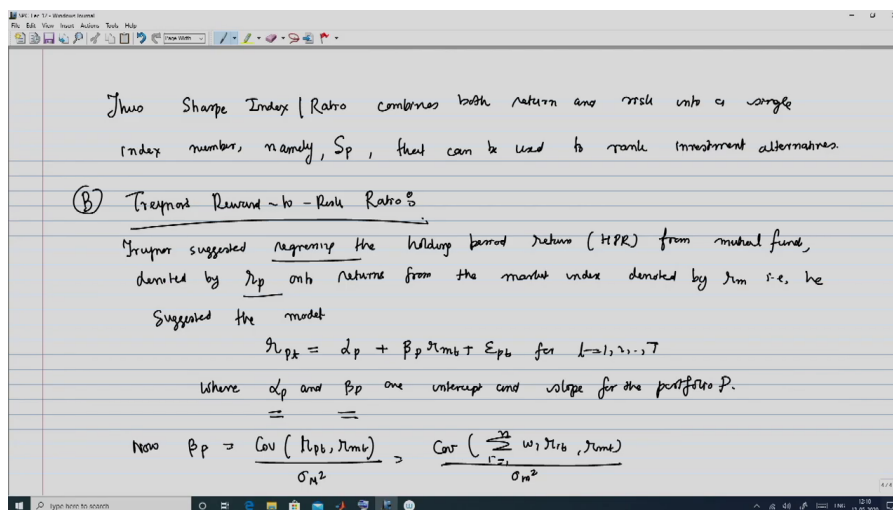 SPC Lec 17 - Windows Journal
File Edit View Insert Actions Tools Help
Page Width
Thus Sharpe Index | Ratio combines both return and risk into a single
index number, namely, Sp, that can be used to rank investment alternatives.
(B) Treynors Reward - to - Risk Ratio:
Treynor suggested regressing the holding period return (HPR) from mutual fund,
denoted by rp onto returns from the market index denoted by rm i.e, he
suggested the model
rpt = αp + βp rmt + εpt for t=1,2,..,T
where αp and βp are intercept and slope for the portfolio P.
Now βp = Cov (rpt, rmt) / σM² = Cov (Σ i=1 n wi rit, rmt) / σm²
4/4
Type here to search
ENG
12:10